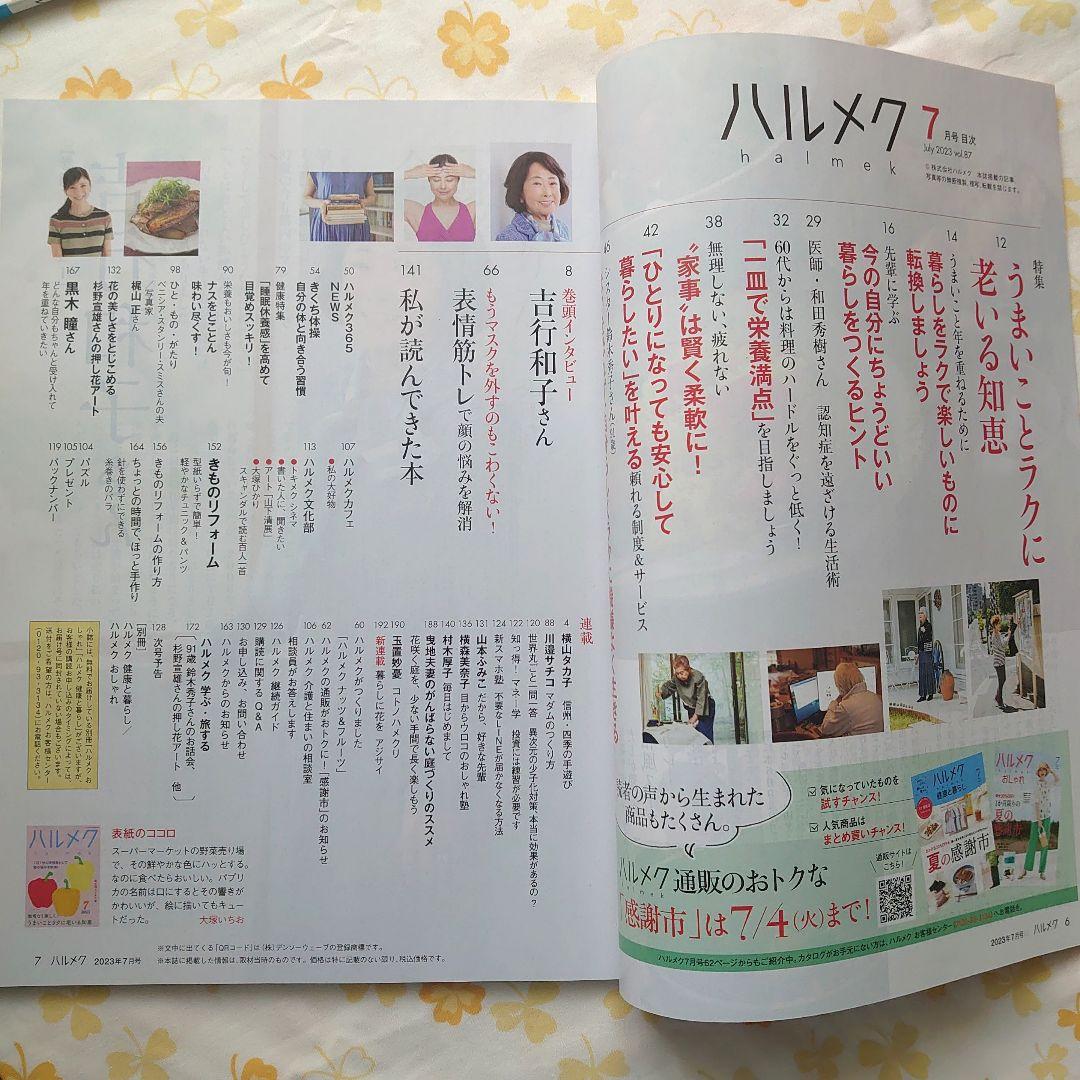 ハルメク
halmek
7
月号 目次
July 2023 vol.87
© 株式会社ハルメク 本誌掲載の記事、
写真等の無断複製、複写、転載を禁じます。
特集
うまいことラクに
老いる知恵
12
うまいこと年を重ねるために
14
暮らしをラクで楽しいものに
転換しましょう
16
先輩に学ぶ
今の自分にちょうどいい
暮らしをつくるヒント
29
医師・和田秀樹さん 認知症を遠ざける生活術
32
60代からは料理のハードルをぐっと低く!
「一皿で栄養満点」を目指しましょう
38
無理しない、疲れない
“家事”は賢く柔軟に!
42
「ひとりになっても安心して
暮らしたい」を叶える頼れる制度&サービス
読者の声から生まれた
商品もたくさん。
気になっていたものを
試すチャンス!
人気商品は
まとめ買いチャンス!
通販サイトは
こちら!
ハルメク 通販のおトクな
「感謝市」は7/4(火)まで!
ハルメク
健康と暮らし
夏の感謝市
ハルメク
おしゃれ
夏の
感謝市
ハルメク7月号62ページからもご紹介中。カタログがお手元にない方は、ハルメク お客様センター
へお電話を。
2023年7月号 ハルメク 6
8
巻頭インタビュー
吉行和子さん
66
もうマスクを外すのもこわくない!
表情筋トレで顔の悩みを解消
141
私が読んできた本
50
ハルメク365
NEWS
54
きくち体操
自分の体と向き合う習慣
79
健康特集
「睡眠休養感」を高めて
目覚めスッキリ!
90
栄養もおいしさも今が旬!
ナスをとことん
味わい尽くす!
98
ひと・もの・がたり
ベニシア・スタンリー・スミスさんの夫
/写真家
梶山 正さん
132
花の美しさをとじこめる
杉野宣雄さんの押し花アート
167
黒木 瞳さん
どんな自分もちゃんと受け入れて
年を重ねていきたい
107
ハルメクカフェ
●私の大好物
113
ハルメク文化部
●トキメクシネマ
●書いた人に、聞きたい
●アート「山下清展」
●大塚ひかり
スキャンダルで読む百人一首
152
きものリフォーム
型紙いらずで簡単!
軽やかなチュニック&パンツ
156
きものリフォームの作り方
164
ちょっとの時間で、ほっと手作り
針を使わずにできる
糸巻きのバラ
104
パズル
105
プレゼント
119
バックナンバー
連載
4 横山タカ子 信州・四季の手遊び
88 川邉サチコ マダムのつくり方
120 世界丸ごと一問一答 異次元の少子化対策、本当に効果があるの?
122 知っ得!・マネー学 投資には練習が必要です
124 新スマホ塾 不要なLINEが届かなくなる方法
131 山本ふみこ だから、好きな先輩
136 横森美奈子 目からウロコのおしゃれ塾
140 村木厚子 毎日はじめまして
188 曳地夫妻のがんばらない庭づくりのススメ
花咲く庭を、少ない手間で長く楽しもう
190 玉置妙憂 コトノハメクリ
192 新連載 暮らしに花を アジサイ
60 ハルメクがつくりました
「ハルメク ナッツ&フルーツ」
62 ハルメクの通販がおトクに!「感謝市」のお知らせ
106 ハルメク 介護と住まいの相談室
相談員がお答えします
126 ハルメク 継続ガイド
129 購読に関するQ&A
130 お申し込み、お問い合わせ
163 ハルメクからのお知らせ
172 ハルメク 学ぶ・旅する
91歳 鈴木秀子さんのお話会、
杉野宣雄さんの押し花アート 他
128 次号予告
[別冊]
ハルメク 健康と暮らし/
ハルメク おしゃれ
小誌には、無料でお届けしている別冊「ハルメク お
しゃれ」「ハルメク 健康と暮らし」がございますが、
お客様の購読お申し込みのタイミングによっては、
お届け号に同封されていない場合もございます。
送付をご希望の方は、ハルメクお客様センター
(0120-93-3134)にお電話ください。
ハルメク
7
うまいことラクに老いる知恵
表紙のココロ
スーパーマーケットの野菜売り場
で、その鮮やかな色にハッとする。
なのに食べたらおいしい。パプリ
カの名前は口にするとその響きが
かわいいが、絵に描いてもキュー
トだった。 大塚いちお
※文中に出てくる「QRコード」は(株)デンソーウェーブの登録商標です。
※本誌に掲載した情報は、取材当時のものです。価格は特に記載のない限り、税込価格です。
7 ハルメク 2023年7月号